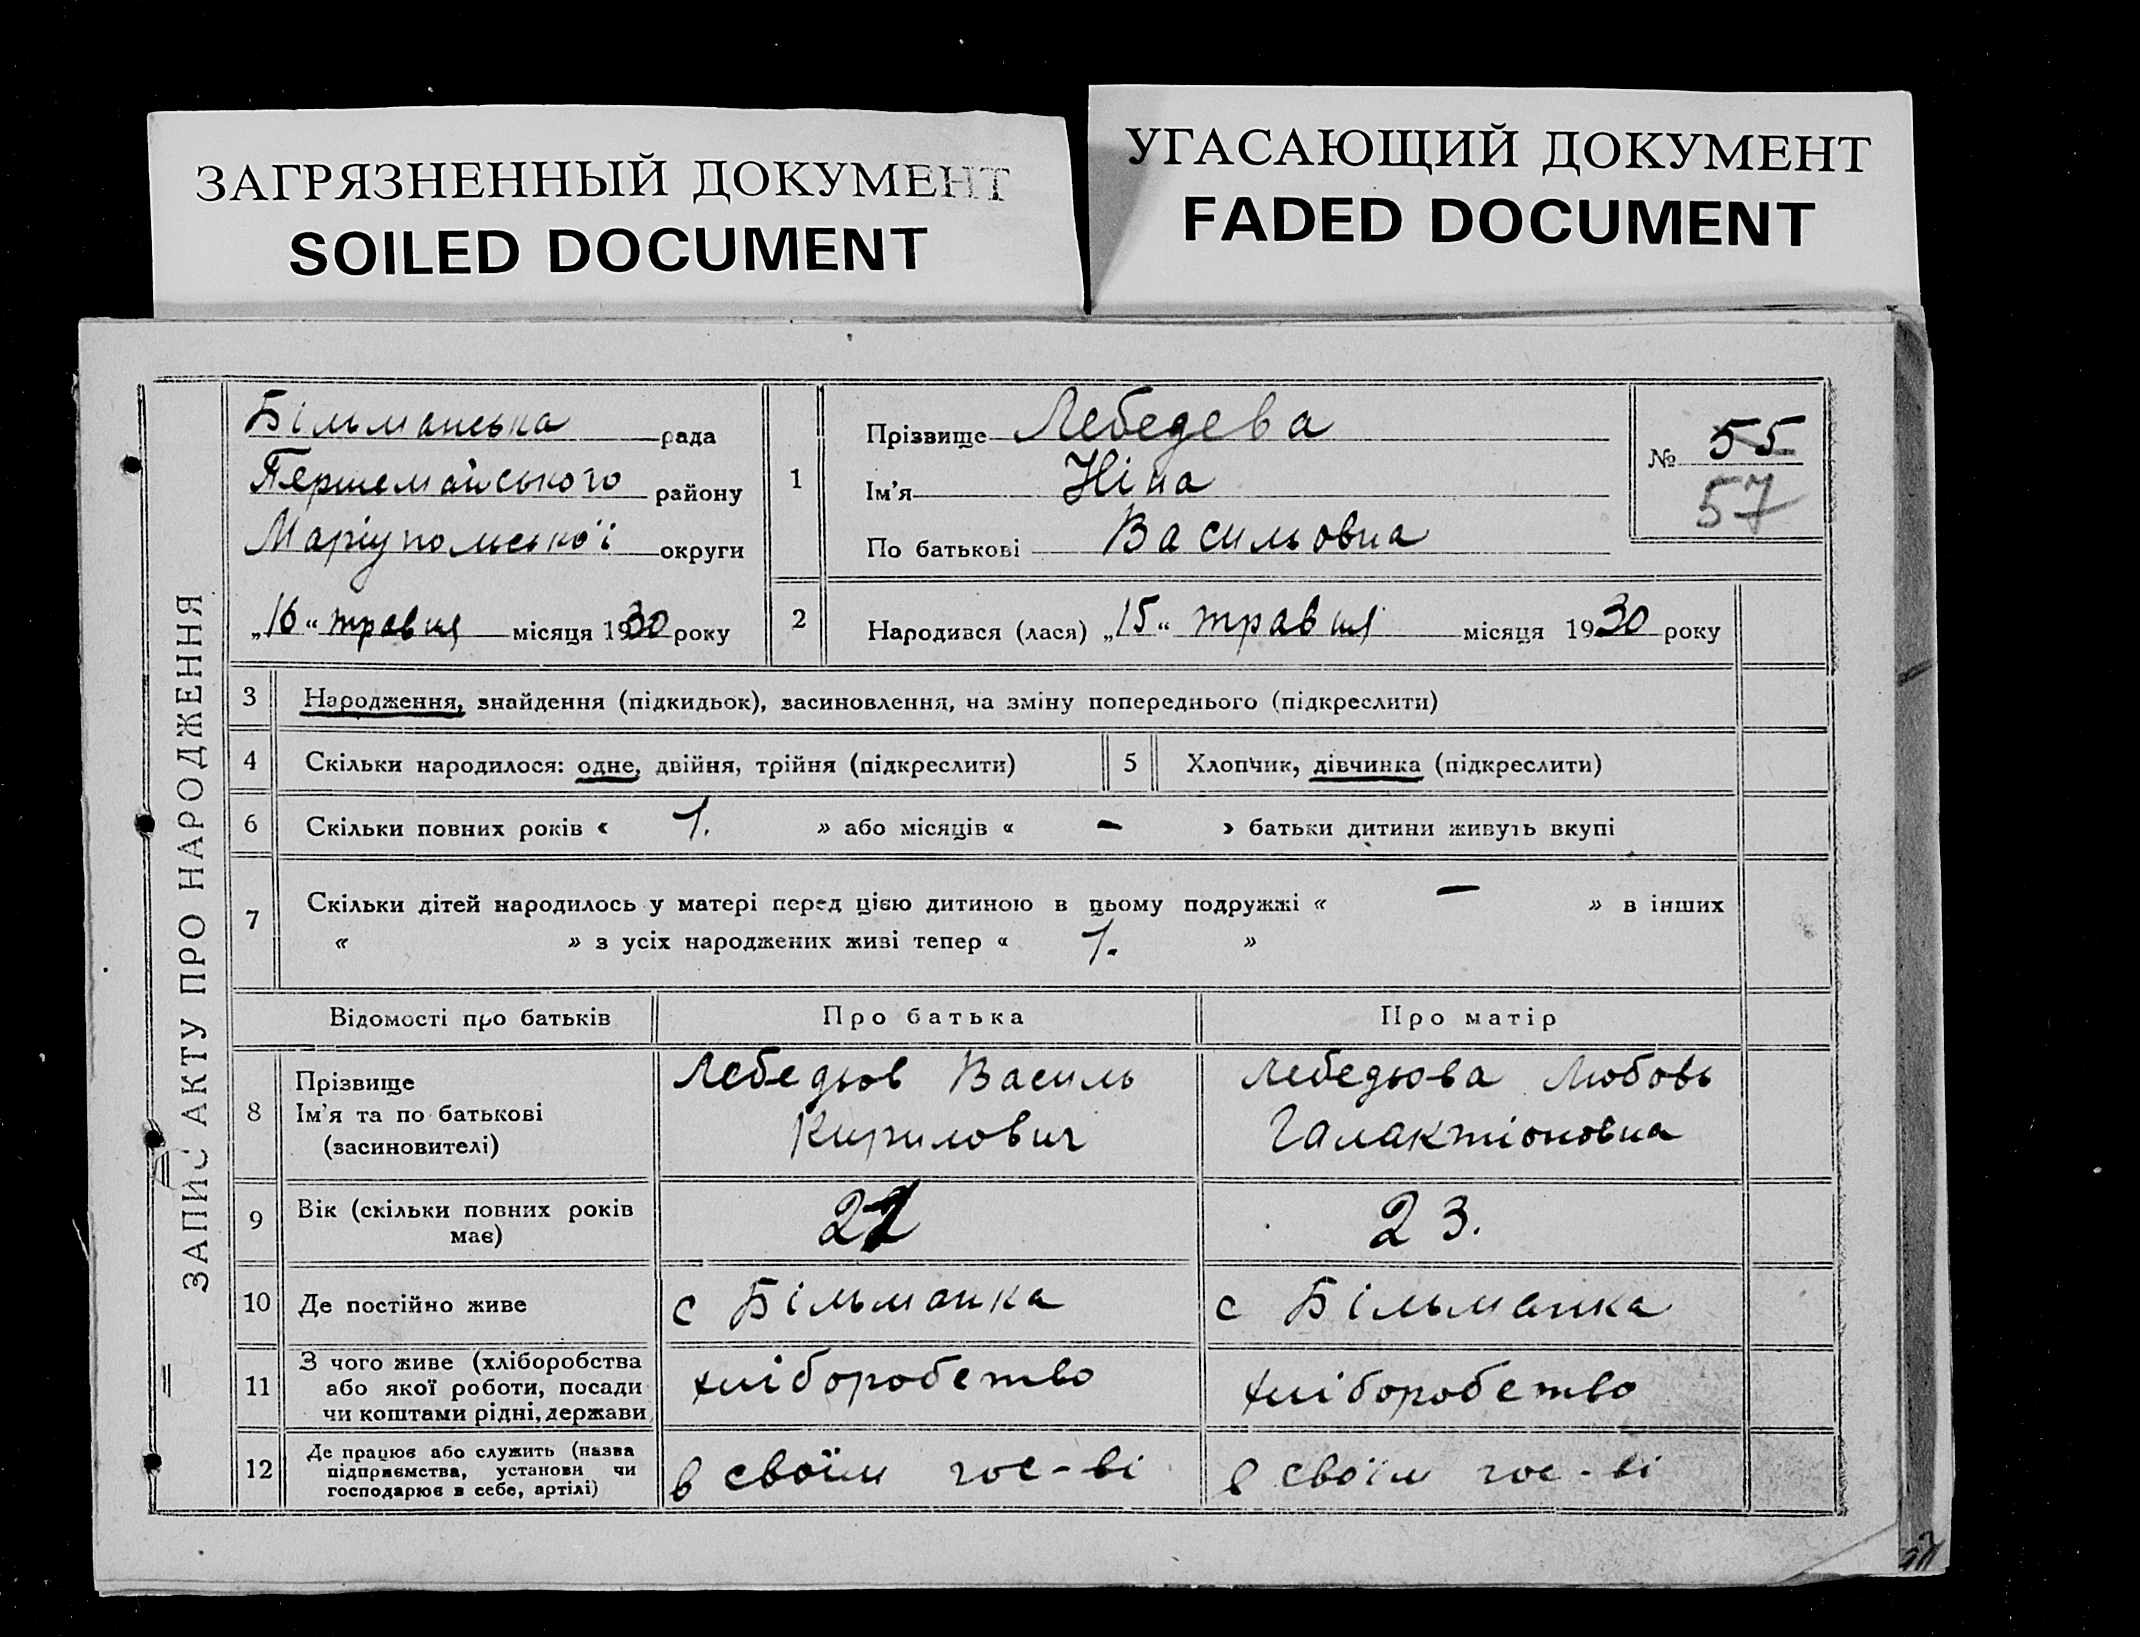 ЗАГРЯЗНЕННЫЙ ДОКУМЕНТ
SOILED DOCUMENT
УГАСАЮЩИЙ ДОКУМЕНТ
FADED DOCUMENT
ЗАПИС АКТУ ПРО НАРОДЖЕННЯ
Більманська рада
Першемайського району
Маріупольської округи
„16“ травня місяця 1930 року
1
Прізвище Лебедева
Ім'я Ніна
По батькові Васильовна
№ 55
57
2 Народився (лася) „15“ травня місяця 1930 року
3 Народження, знайдення (підкидьок), засиновлення, на зміну попереднього (підкреслити)
4 Скільки народилося: одне, двійня, трійня (підкреслити) 5 Хлопчик, дівчинка (підкреслити)
6 Скільки повних років « 1. » або місяців « – » батьки дитини живуть вкупі
7 Скільки дітей народилось у матері перед цією дитиною в цьому подружжі « – » в інших
« » з усіх народжених живі тепер « 1. »
Відомості про батьків Про батька Про матір
8
Прізвище
Ім'я та по батькові
(засиновителі)
Лебедьов Василь
Кирилович
Лебедьова Любовь
Галактіоновна
9
Вік (скільки повних років
має)
23.
10 Де постійно живе с Більманка с Більманка
11
З чого живе (хліборобства
або якої роботи, посади
чи коштами рідні, держави
хліборобство
хліборобство
12
Де працює або служить (назва
підприємства, установи чи
господарює в себе, артілі)
в своїм гос-ві
в своїм гос-ві